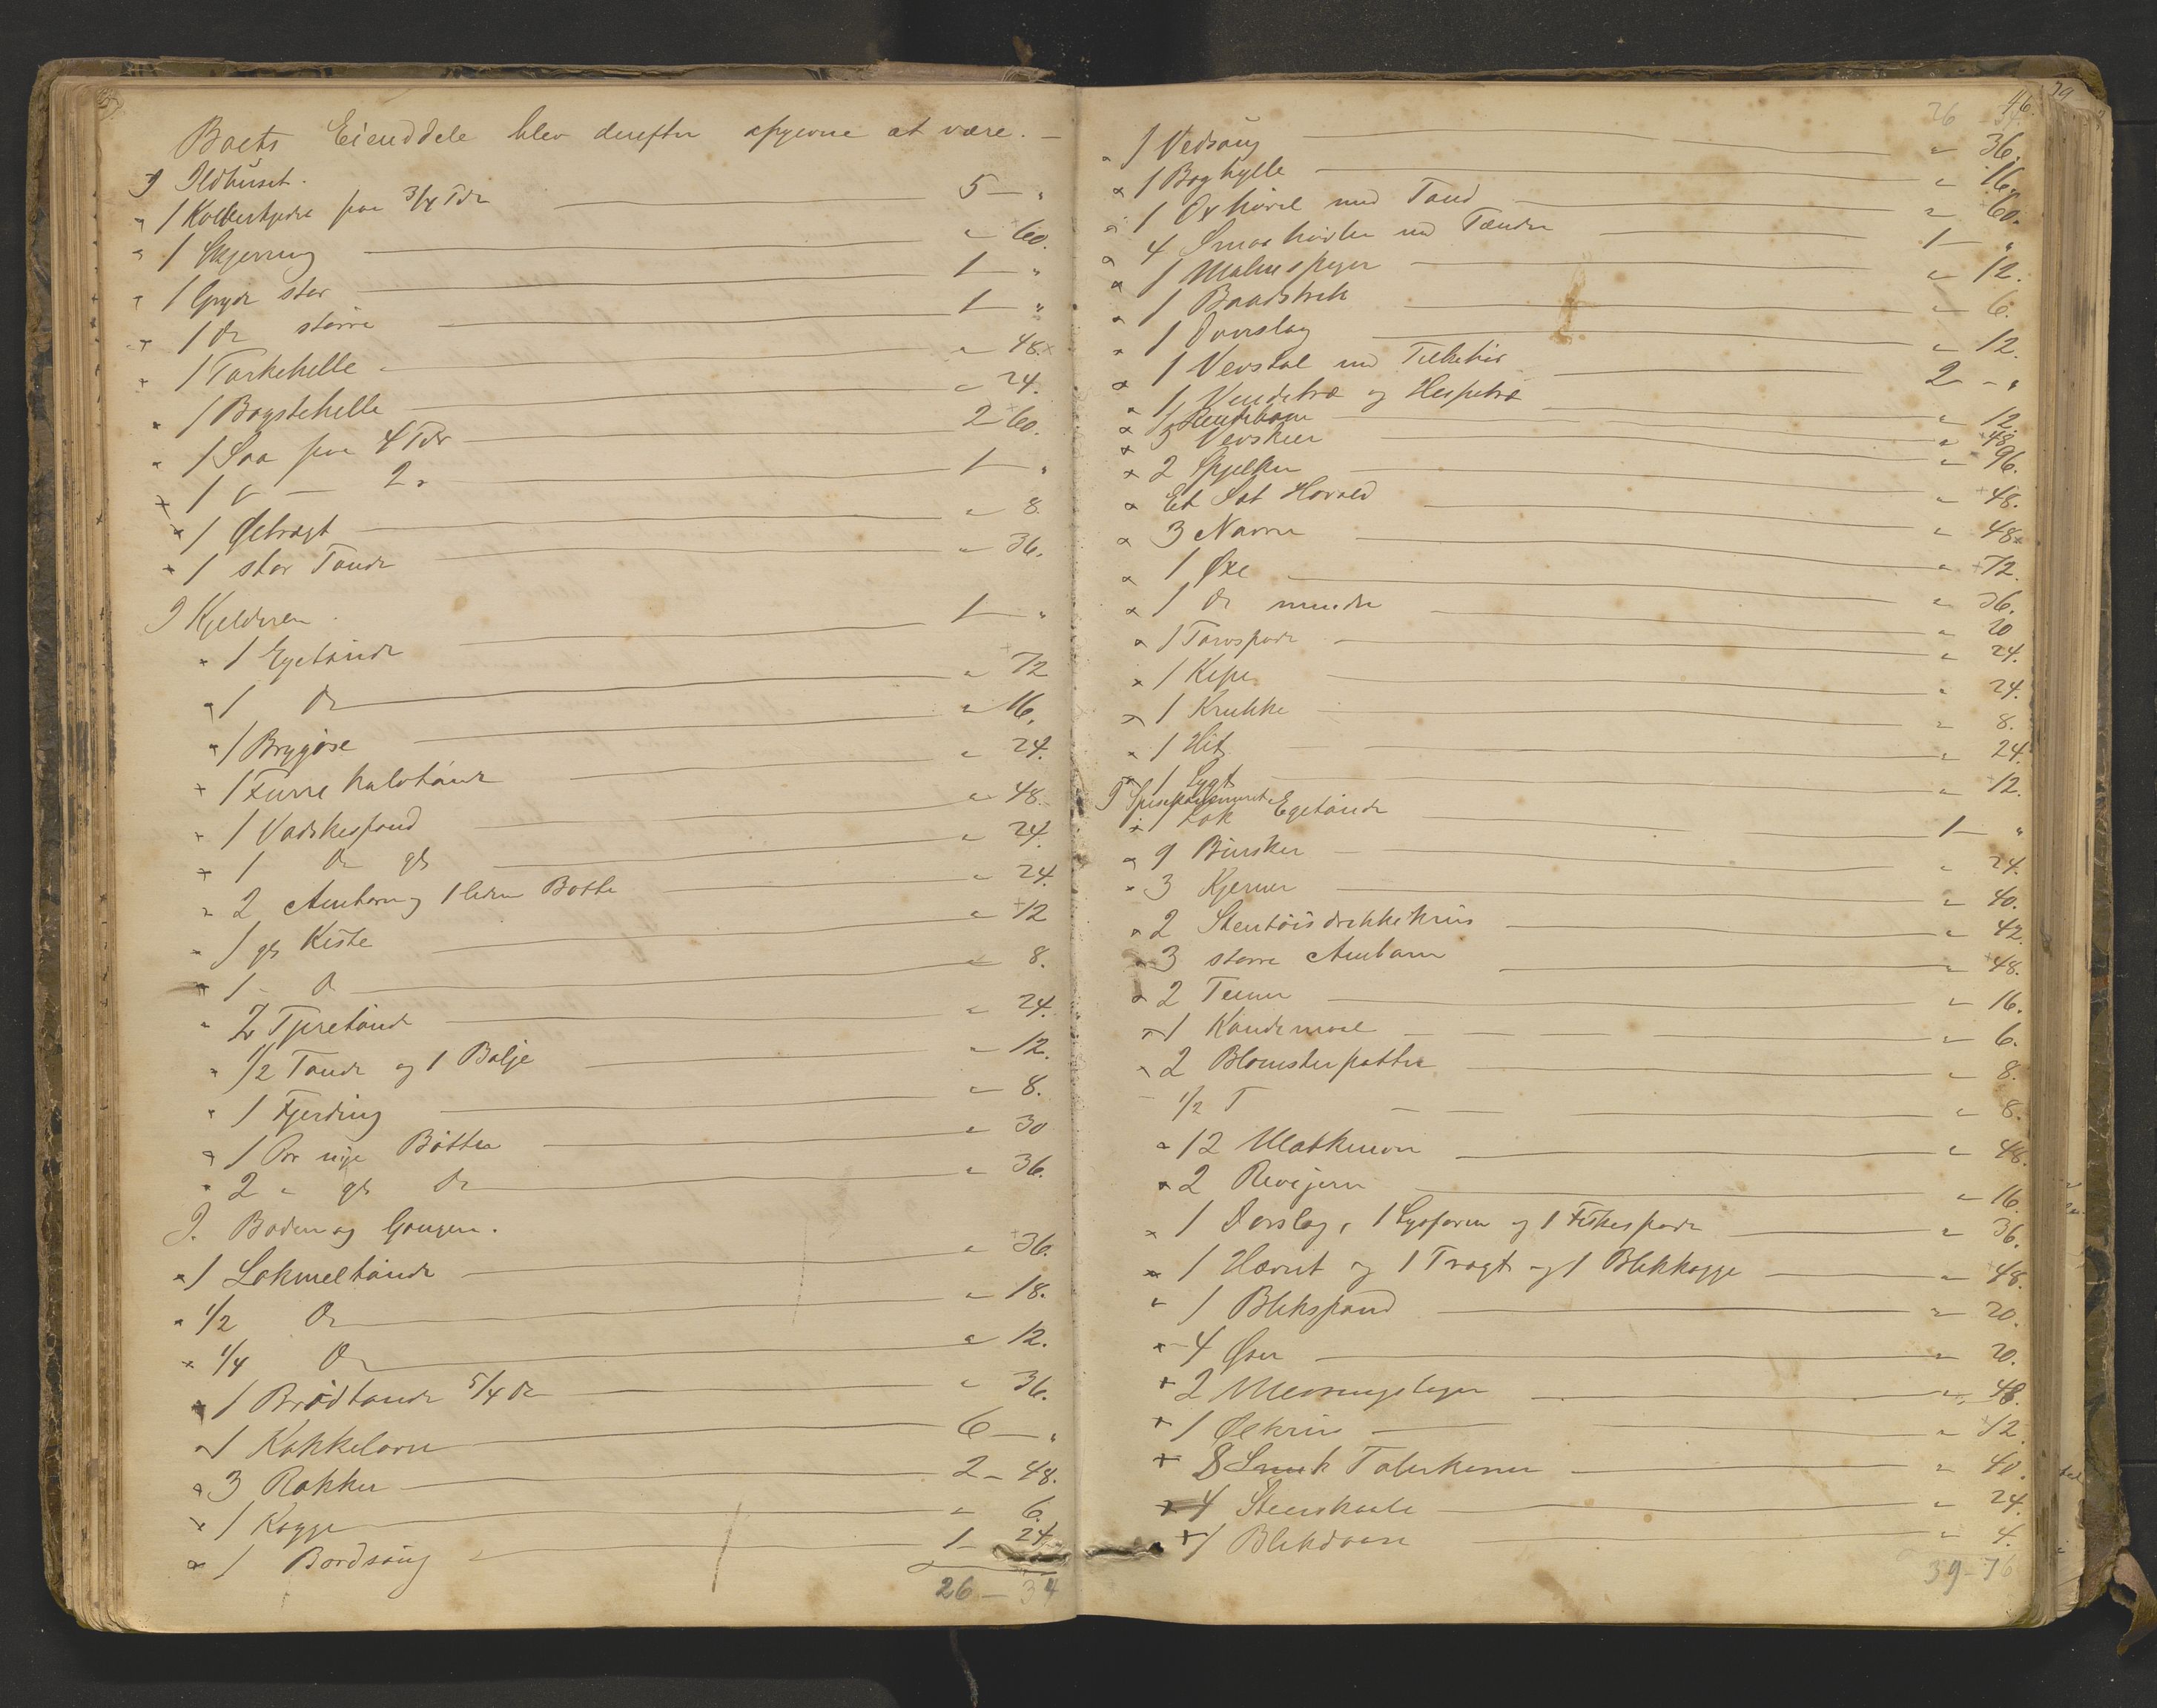 Boets Eienddele blev derefter opgivne at være. —
I Ildhuset.
1 Kobberkjedel paa 3/4 Tdr — 5 — "
1 Skjerring — " 60.
1 Gryde stor — 1 — "
1 do større — 1 — "
1 Tarkehelle — " 48.
1 Bagstehelle — " 24.
1 Saa paa 4 Tdr — 2 60.
1 do — 2 " — 1 — "
1 Øltragt — " 8.
1 stor Tønde — " 36.
I Kjelderen.
1 Egetønde — 1 — "
1 do — " 72
1 Bryggøse — " 16.
1 Furre halvtønde — " 24.
1 Vadskespand — " 48.
1 do gl — " 24.
2 Ambar og 1 liden Bøtte — " 24.
1 gl Kiste — " 12
1 - do — " 8.
2 Tjæretønde — " 24.
1/2 Tønde og 1 Balje — " 12.
1 Fjerding — " 8.
1 Par nye Bøtter — " 30
2 " gl do — " 36.
I. Boden og Gangen.
1 Lokmeltønde — " 36.
1/2 do — " 18.
1/4 do — " 12.
1 Brødtønde 5/4 do — " 36.
1 Kakkelovn — 6 — "
3 Rokker — 2 - 48.
1 Kagge — " 6.
1 Bordsaug — 1 - 24.
26 — 34
46.
26 34
1 Vedsaug — " 36.
1 Boghylle — " 16.
1 Oxhøvel med Tand — " 60.
4 Smaa høvler med Tænder — 1 — "
1 Malm — " 12.
1 Baandstrik — " 6.
1 Dørslag — " 12.
1 Vevstol med Tilbehør — 2 - "
1 Vendetræ og Hespetræ — " 12.
1 — " 48.
3 Vevskeer — " 96.
2 Spjelker
Et Sæt Hoveld — " 48.
3 Navre — " 48.
1 Øxe — " 72.
1 do mindre — " 36.
1 Torvspade — " 20
1 Kipe — " 24.
1 Krukke — " 24.
1 Hit — " 8.
1 Lygt — " 24.
I Spisekammeret — " 12.
1 Lok Egetønde — 1 — "
9 Bunker — " 24.
3 Kjerner — " 40.
2 Stentøis drikkekrus — " 42.
3 større Ambarer — " 48.
2 Teiner — " 16.
1 Kandemaal — " 6.
2 Blomsterpotter — " 8.
1/2 T — " 8.
12 Matkmerer — " 48.
2 Rivejern — " 16.
1 Dorslag, 1 Lysform og 1 Fiskespade — " 36.
1 og 1 Tragt og 1 Blikkagge — " 48.
1 Blikspand — " 20.
4 Øser — " 20.
2 Messingslager — " 48.
1 Ølkrus — " 12.
8 Smuk Talerkener — " 40.
4 Steenskaale — " 24.
1 Blikdaase — " 4.
39 - 76